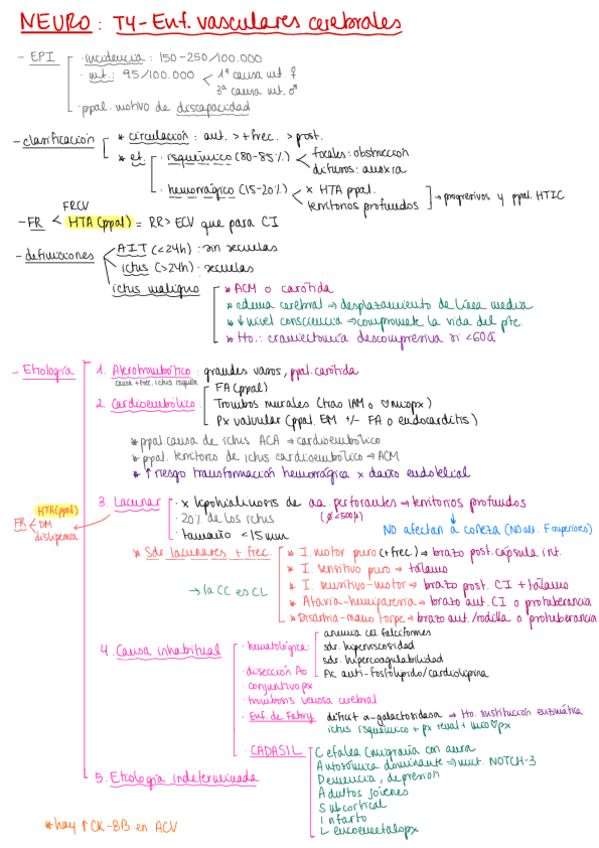 NEURO: T4-Enf. vasculares cerebrales
- EPI
· incidencia: 150-250/100.000
· mt.: 95/100.000 < 1ª causa mt. ♀
3ª causa mt. ♂
· ppal. motivo de discapacidad
- clasificación
* circulación: ant. > + frec. > post.
* et.
· isquémico (80-85%) < focales: obstrucción
difusos: anoxia
· hemorrágico (15-20%) < x HTA ppal.
territorios profundos
→ progresivos y ppal. HTIC
FRCV
- FR < HTA (ppal) = RR > ECV que para CI
- definiciones
AIT (<24h): sin secuelas
ictus (>24h): secuelas
ictus maligno
* ACM o carótida
* edema cerebral → desplazamiento de línea media
* ↓ nivel consciencia → compromete la vida del pte
* tto.: craniectomía descompresiva si <60a
- Etiología
1. Aterotrombótico: grandes vasos, ppal. carótida
causa + frec. ictus isquém
2. Cardioembólico:
FA (ppal)
Trombos murales (tras IAM o ♡miopx)
Px valvular (ppal. EM +/- FA o endocarditis)
* ppal causa de ictus ACA → cardioembólico
* ppal. territorio de ictus cardioembólico → ACM
* ↑ riesgo transformación hemorrágica x daño endotelial
3. Lacunar
· x lipohialinosis de aa. perforantes → territorios profundos
(ø <500µ)
· 20% de los ictus
· tamaño <15mm
NO afectan a corteza (NO alt. F superiores)
FR < HTA (ppal)
DM
dislipemia
* Sdr. lacunares + frec.
* I. motor puro (+ frec.) → brazo post. cápsula int.
* I. sensitivo puro → tálamo
* I. sensitivo-motor → brazo post. CI + tálamo
* Ataxia-hemiparesia → brazo ant. CI o protuberancia
* Disartria-mano torpe → brazo ant./rodilla o protuberancia
→ la CC es CL
4. Causa inhabitual
· hematológica:
anemia cél falciformes
sdr. hiperviscosidad
sdr. hipercoagulabilidad
Ac anti-fosfolípido/cardiolipina
· disección Ao
· conjuntivopx
· trombosis venosa cerebral
· Enf. de Fabry déficit α-galactosidasa → tto. sustitución enzimática
ictus isquémico + px renal + mio♡px
· CADASIL
Cefalea (migraña con aura
Autosómica dominante → mut. NOTCH-3
Demencia, depresión
Adultos jóvenes
Subcortical
Infarto
Leucoencefalopx
5. Etiología indeterminada
* hay ↑ CK-BB en ACV